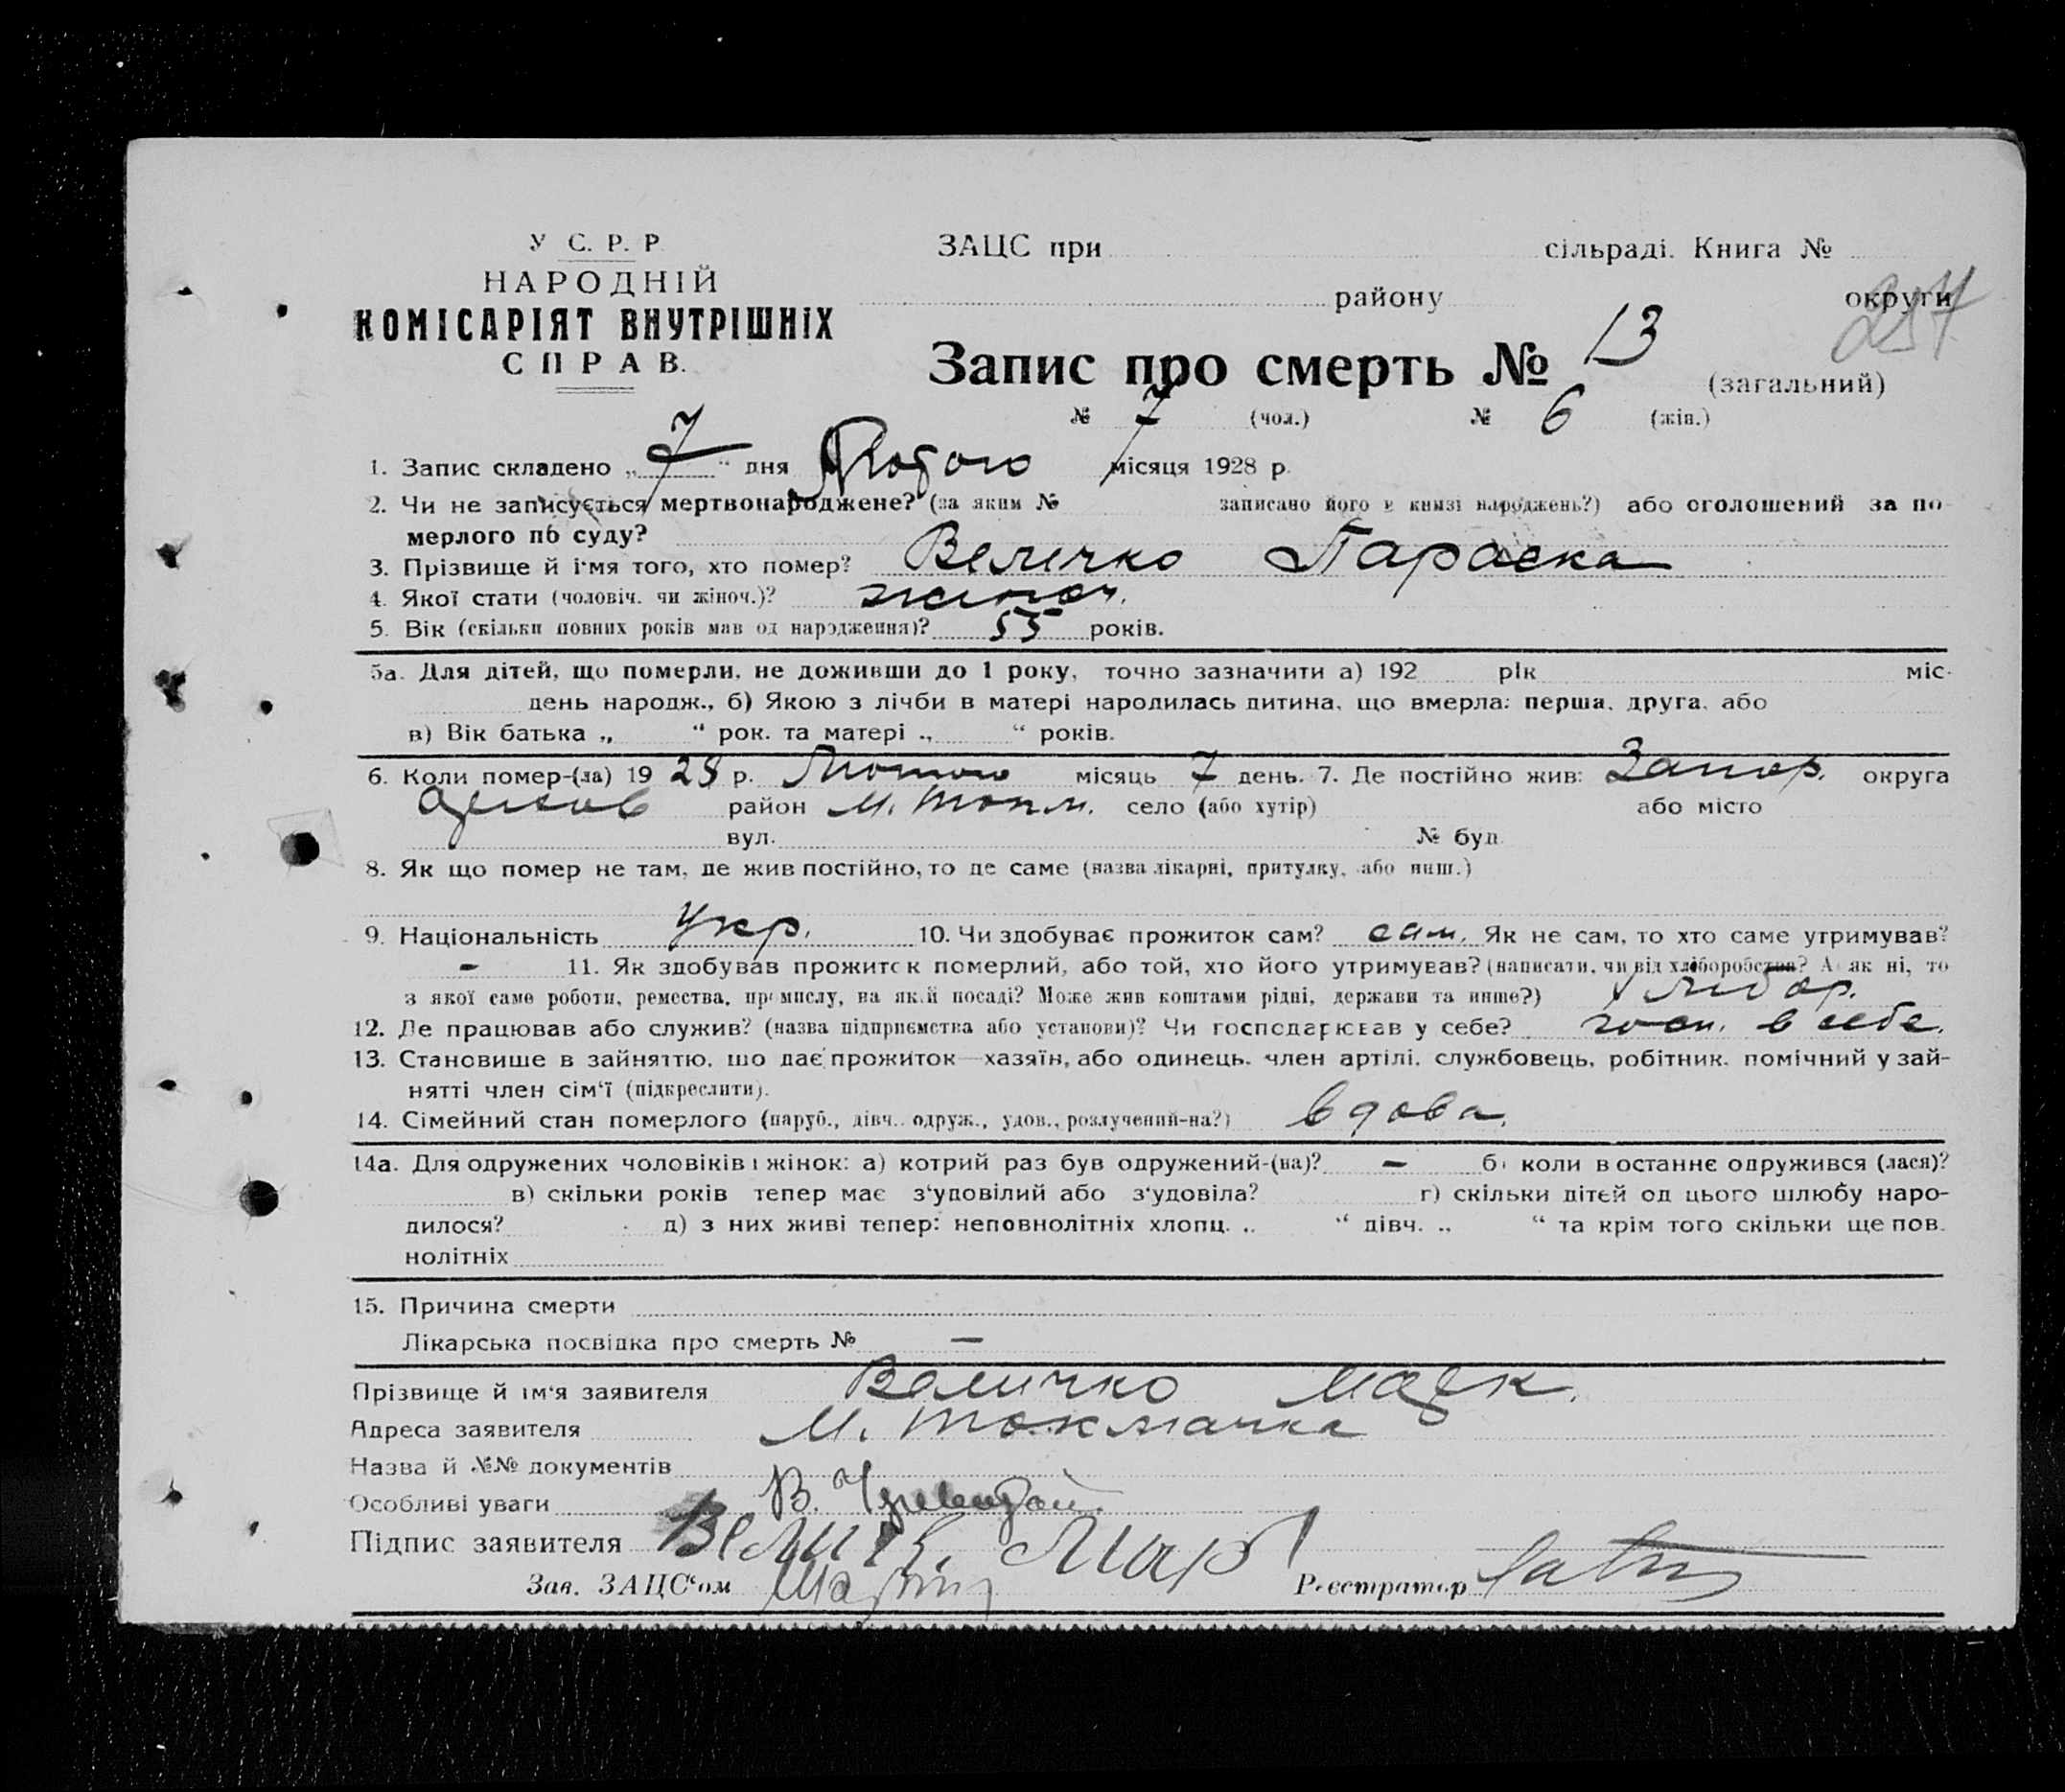 У С. Р. Р.
НАРОДНІЙ
КОМІСАРІЯТ ВНУТРІШНІХ
СПРАВ.
ЗАЦС при сільраді. Книга №
району округи
257
Запис про смерть № 13 (загальний)
№ 7 (чол.) № 6 (жін.)
1. Запис складено „ 7 “ дня місяця 1928 р.
2. Чи не записується мертвонароджене? (за яким № записано його в книзі народжень?) або оголошений за по-
мерлого по суду?
3. Прізвище й імя того, хто помер? Величко Параска
4. Якої стати (чоловіч. чи жіноч.)? жіноч.
5. Вік (скільки повних років мав од народження)? 55 років.
5а. Для дітей, що померли, не доживши до 1 року, точно зазначити а) 192 рік міс.
день народж., б) Якою з лічби в матері народилась дитина, що вмерла: перша, друга, або
в) Вік батька „ “ рок. та матері „ “ років.
6. Коли помер-(ла) 19 28 р. Лютого місяць 7 день. 7. Де постійно жив: Запор. округа
Оріхів район М. Токм. село (або хутір) або місто
вул. № буд.
8. Як що помер не там, де жив постійно, то де саме (назва лікарні, притулку, або инш.)
9. Національність Укр. 10. Чи здобуває прожиток сам? сам. Як не сам, то хто саме утримував?
- 11. Як здобував прожиток померлий, або той, хто його утримував? (написати, чи від хліборобства? А як ні, то
з якої саме роботи, ремества, промислу, на якій посаді? Може жив коштами рідні, держави та инше?) хлібор.
12. Де працював або служив? (назва підприємства або установи)? Чи господарював у себе? госп. в себе.
13. Становище в зайняттю, що дає прожиток—хазяїн, або одинець, член артілі, службовець, робітник, помічний у зай-
нятті член сім‘ї (підкреслити).
14. Сімейний стан померлого (паруб., дівч., одруж., удов., розлучений-на?) вдова.
14а. Для одружених чоловіків і жінок: а) котрий раз був одружений-(на)? — б) коли в останнє одружився (лася)?
в) скільки років тепер має з‘удовілий або з‘удовіла? г) скільки дітей од цього шлюбу наро-
дилося? д) з них живі тепер: неповнолітніх хлопц. „ “ дівч. „ “ та крім того скільки ще пов.
нолітніх
15. Причина смерти
Лікарська посвідка про смерть № —
Прізвище й ім‘я заявителя Величко
Адреса заявителя М. Токмачка
Назва й №№ документів
Особливі уваги В.
Підпис заявителя Велич. Мар
Зав. ЗАЦС‘ом Реєстратор